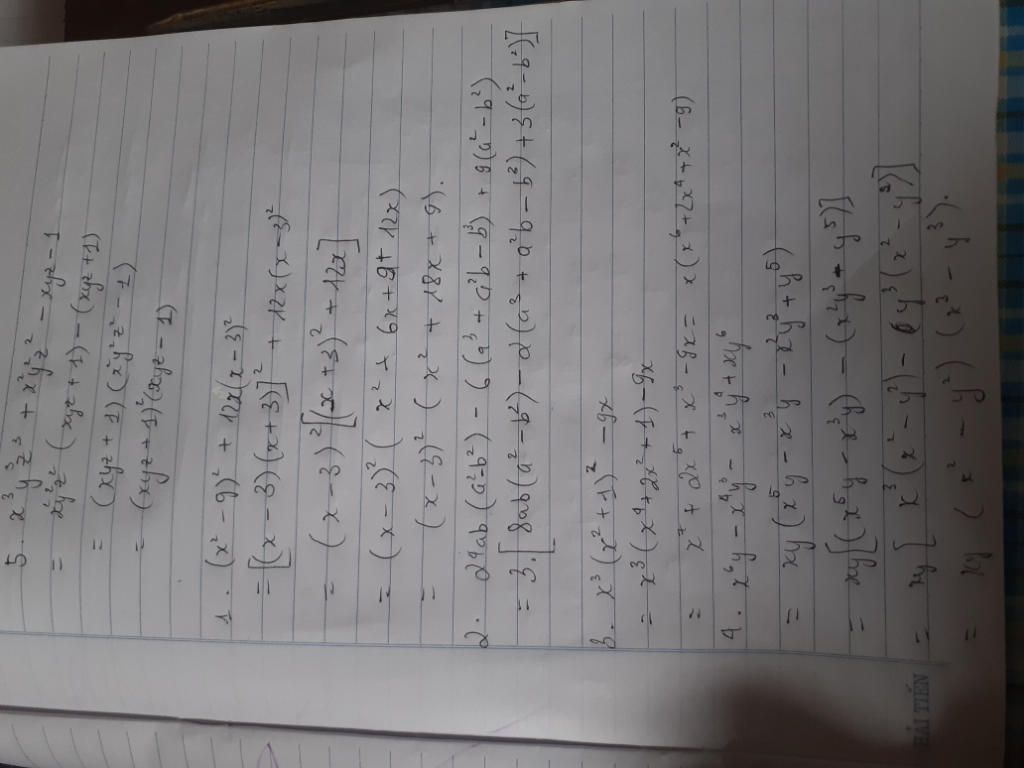 5. x³y³z³ + x²y²z² - xyz - 1
= x²y²z² (xyz + 1) - (xyz + 1)
= (xyz + 1) (x²y²z² - 1)
= (xyz + 1)² (xyz - 1)
1. (x² - 9)² + 12x(x - 3)²
= [(x - 3)(x + 3)]² + 12x(x - 3)²
= (x - 3)² [(x + 3)² + 12x]
= (x - 3)² (x² + 6x + 9 + 12x)
= (x - 3)² (x² + 18x + 9).
2. 24ab(a² - b²) - 6(a³ + a²b - b²) + 9(a² - b²)
= 3.[8ab(a² - b²) - 2(a³ + a²b - b²) + 3(a² - b²)]
3. x³(x² + 1)² - 9x
= x³(x⁴ + 2x² + 1) - 9x
= x⁷ + 2x⁵ + x³ - 9x = x(x⁶ + 2x⁴ + x² - 9)
4. x⁶y - x⁴y³ - x³y⁴ + xy⁶
= xy(x⁵ - x³y² - x²y³ + y⁵)
= xy[(x⁵ - x³y²) - (x²y³ + y⁵)]
= xy[x³(x² - y²) - y³(x² - y²)]
= xy (x² - y²) (x³ - y³).
HẢI TIẾN